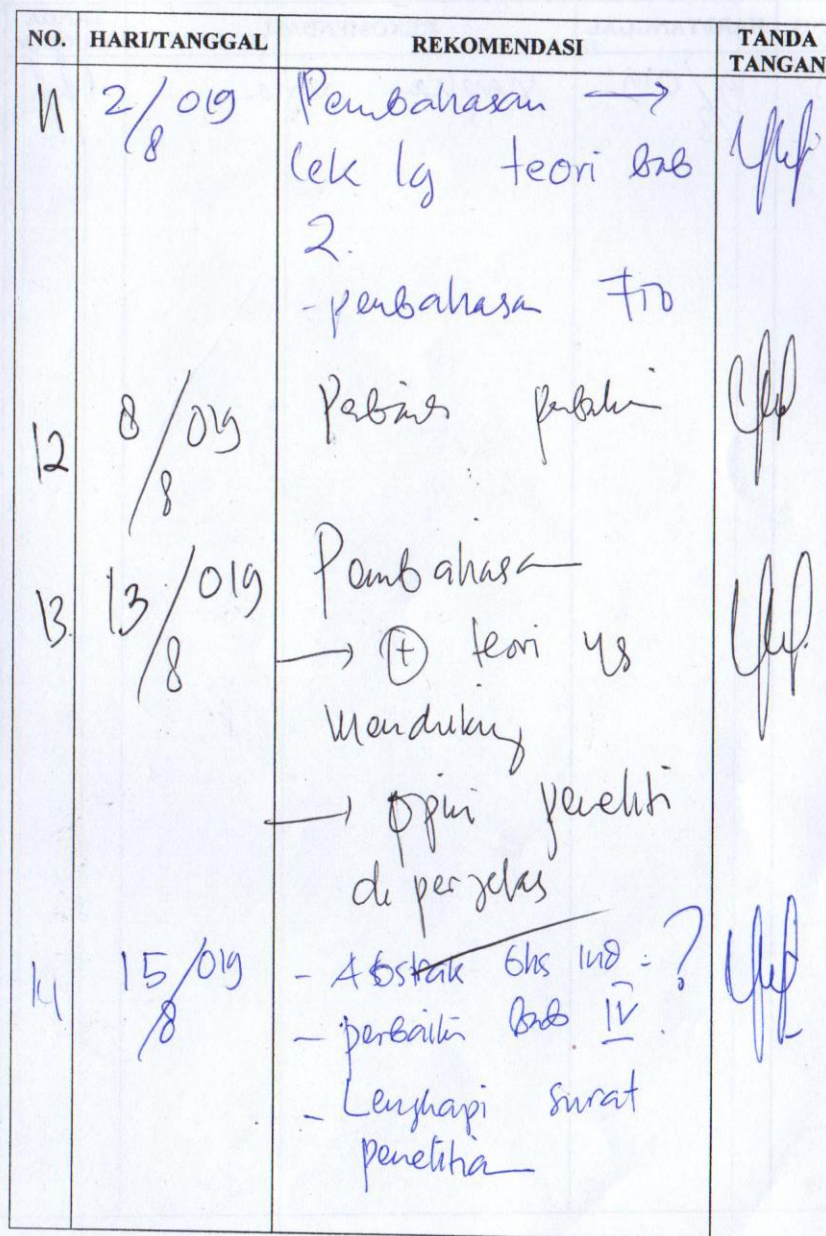 NO. HARI/TANGGAL REKOMENDASI TANDA TANGAN
11 2/8 019 Pembahasan →
Cek lg teori bab
2.
- pembahasan
12 8/8 019
13. 13/8 019 Pembahasan
→ + teori yg
mendukung
→ Opini peneliti
di perjelas
14 15/8 019 - Abstrak bhs ind = ?
- perbaiki bab IV
- Lengkapi surat
penelitian